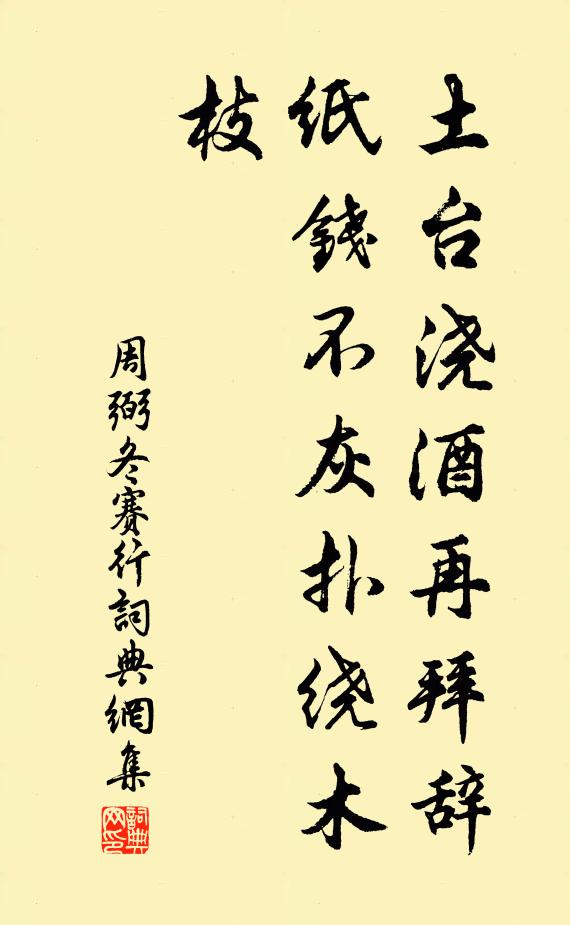 土台浇酒再拜辞
纸錢不灰扑绕木
枝
周弼冬赛行詞典網集
詞典网印